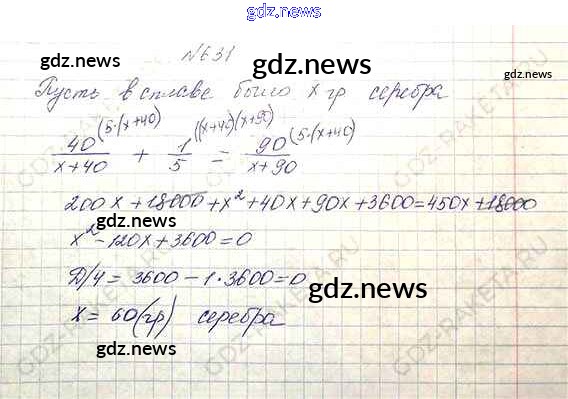 gdz.news
№631
gdz.news gdz.news
Пусть в сплаве было x гр серебра
40/(x+40) (5·(x+40) + 1/5 ((x+40)(x+90) = 90/(x+90) (5·(x+40)
200x + 18000 + x² + 40x + 90x + 3600 = 450x + 18000
x² - 120x + 3600 = 0
Д/4 = 3600 - 1·3600 = 0
gdz.news gdz.news
x = 60 (гр) серебра
gdz.news gdz.news
GDZ-RAKETA.RU
gdz.news